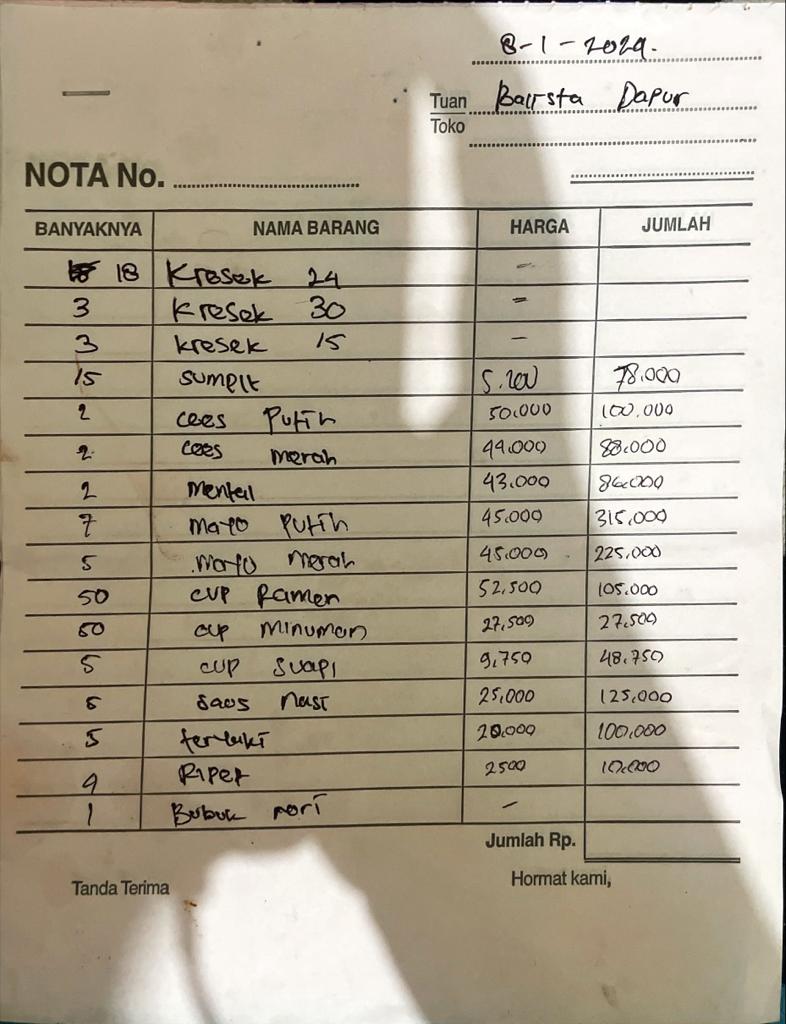 8-1-2024.
Tuan Barista Dapur
Toko
NOTA No.
BANYAKNYA NAMA BARANG HARGA JUMLAH
18 Kresek 24 -
3 Kresek 30 -
3 kresek 15 -
15 sumpit 5.200 78.000
2 coes Putih 50.000 100.000
2 coes merah 44.000 88.000
2 mentai 43.000 86.000
7 mayo putih 45.000 315.000
5 mayo merah 45.000 225.000
50 cup Ramen 52,500 105.000
50 cup minuman 27,500 27.500
5 cup suapi 9,750 48.750
5 saos nasi 25,000 125,000
5 teriyaki 20.000 100.000
4 Ripet 2500 10.000
1 Bubuk nori -
Jumlah Rp.
Tanda Terima Hormat kami,